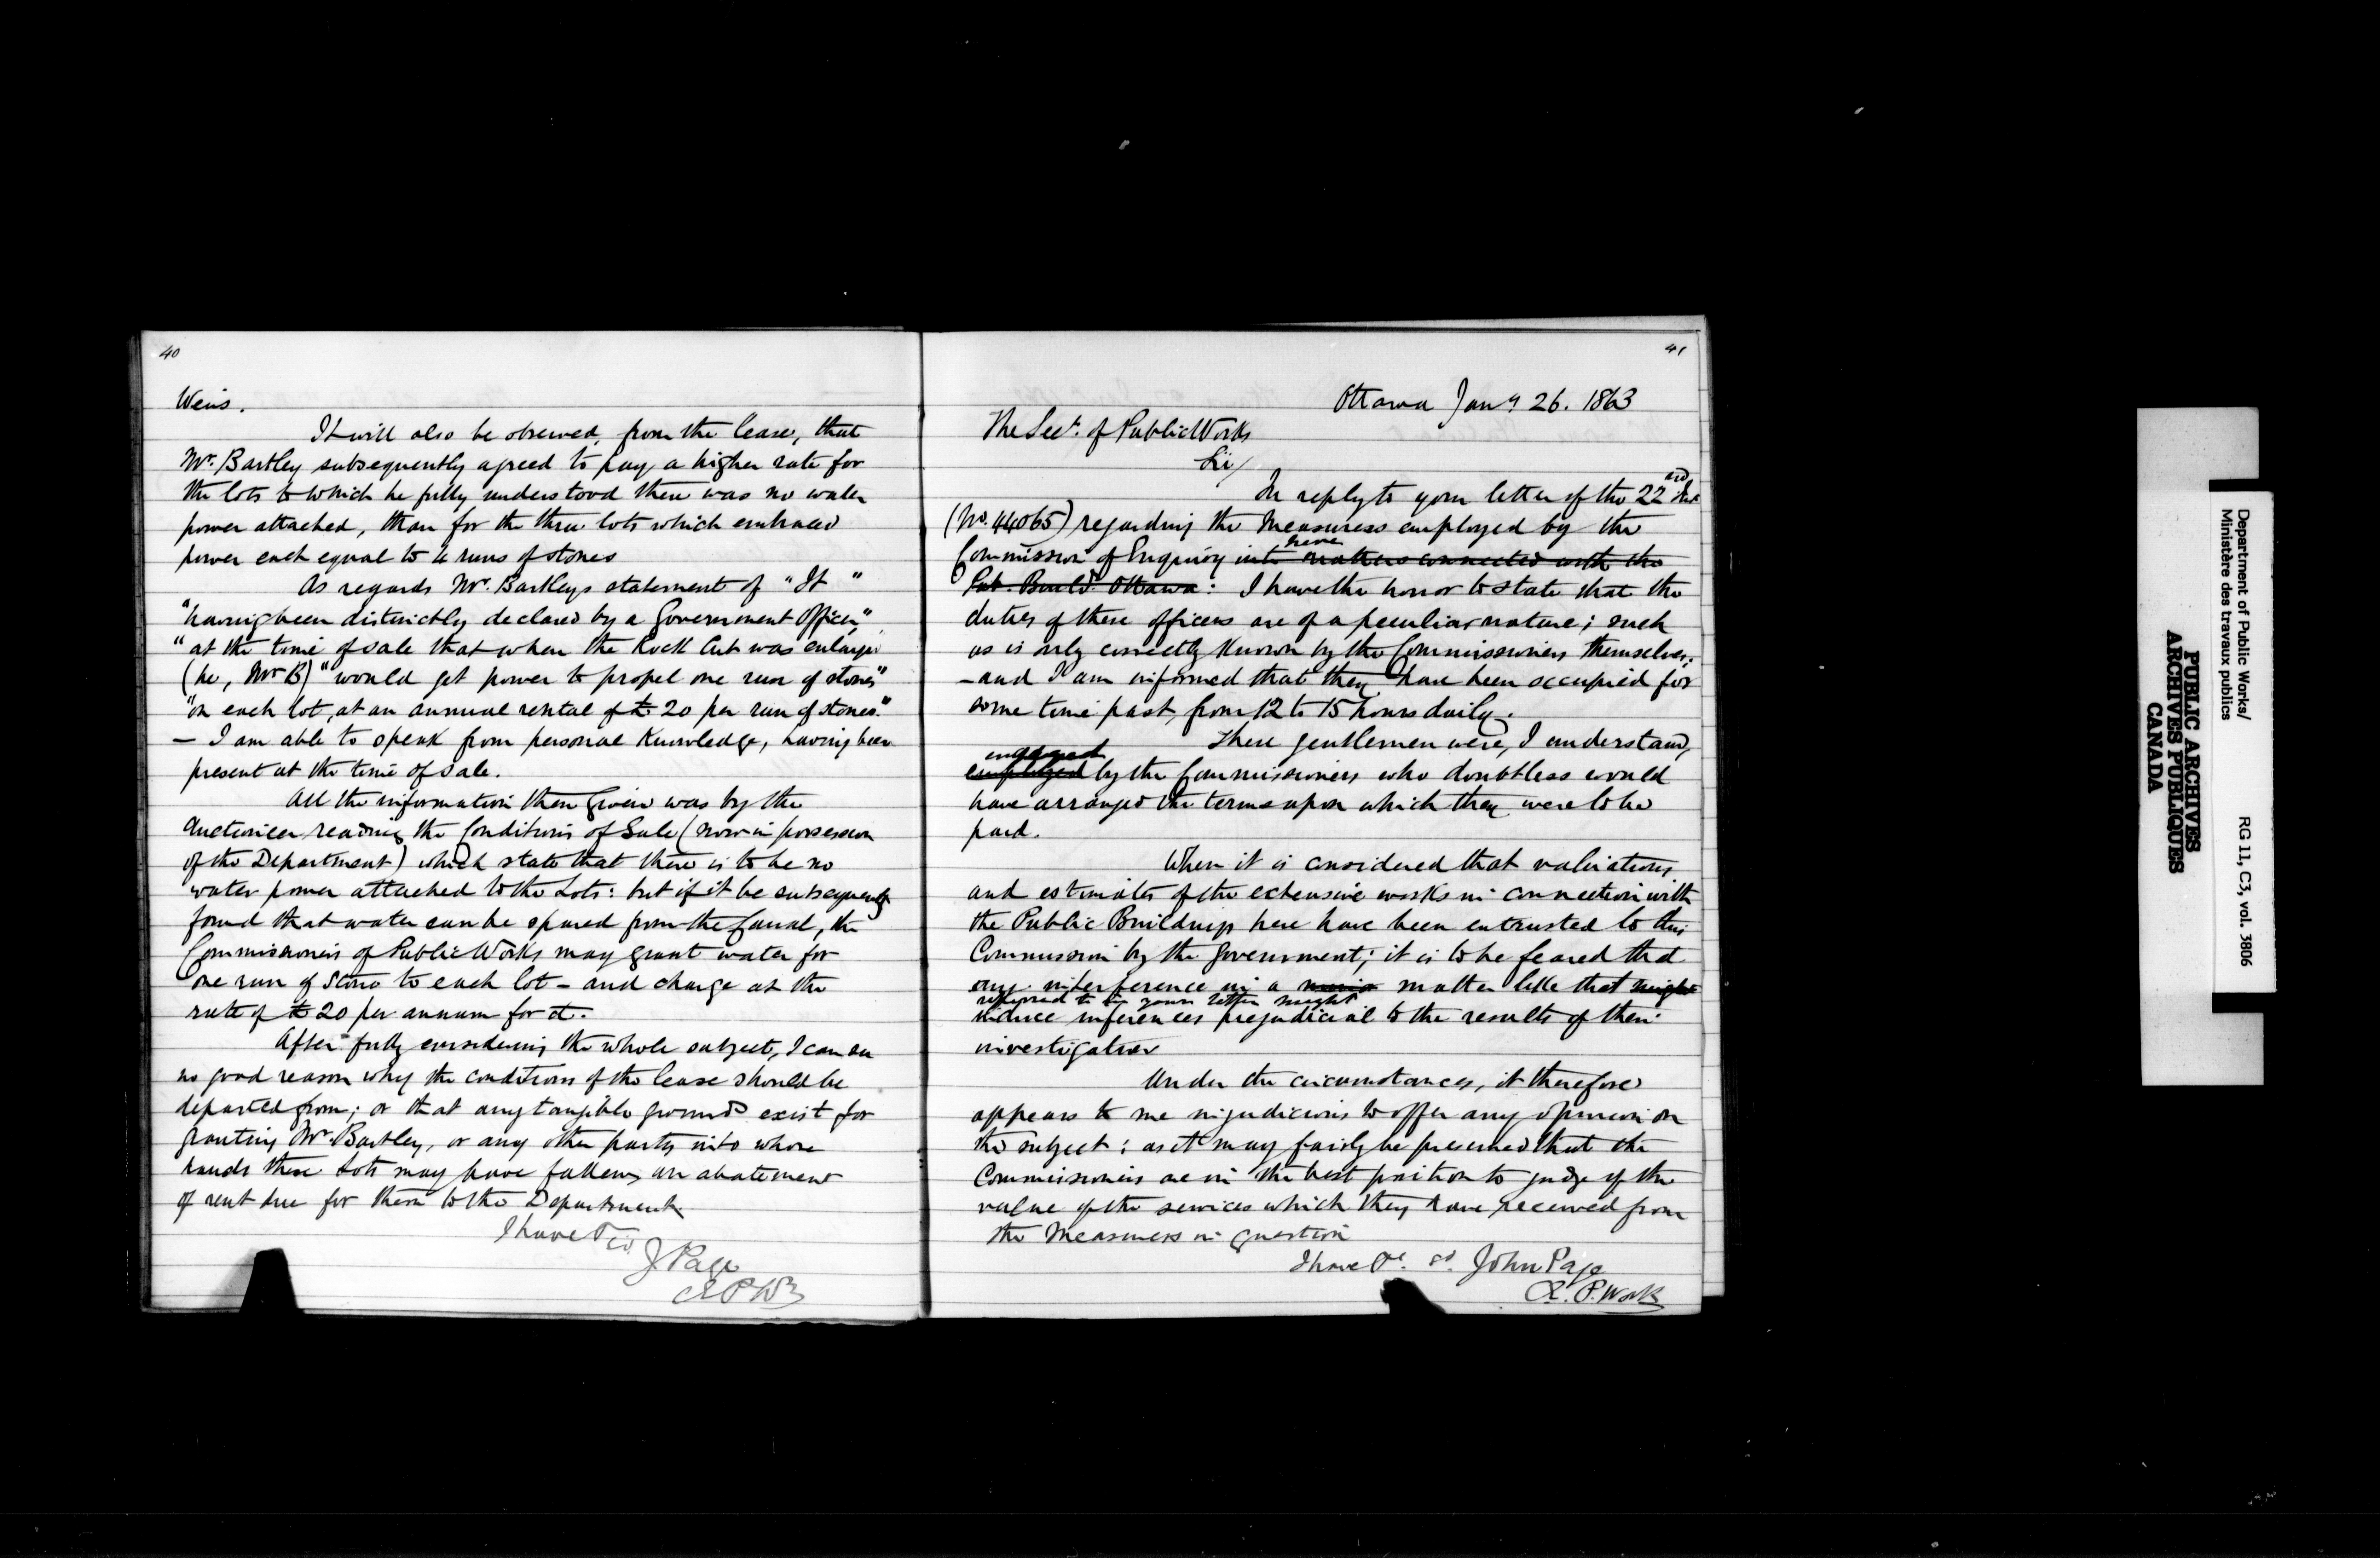 40
Weirs.
It will also be observed, from the lease, that
Mr. Bartley subsequently agreed to pay a higher rate for
the lots to which he fully understood there was no water
power attached, than for the three lots which embraced
power each equal to 4 runs of stones
As regards Mr. Bartleys statement of "It"
"having been distinctly declared by a Government Officer,"
"at the time of sale that when the Rock Cut was enlarged
(he, Mr B) "would get power to propel one run of stones"
"on each lot, at an annual rental of £ 20 per run of stones."
— I am able to speak from personal knowledge, having been
present at the time of sale.
All the information then given was by the
Auctioneer reading the Conditions of Sale (now in possession
of the Department) which state that there is to be no
water power attached to the Lots: but if it be subsequently
found that water can be spared from the Canal, the
Commissioners of Public Works may grant water for
one run of Stone to each lot – and charge at the
rate of £ 20 per annum for it.
After fully considering the whole subject, I can see
no good reason why the conditions of the lease should be
departed from; or that any tangible grounds exist for
granting Mr. Bartley, or any other party into whose
hands these Lots may have fallen, an abatement
of rent due for them to the Department.
I have &c
J Page
C E P W
41
Ottawa Jany 26. 1863
The Secy. of Public Works
Sir/
In reply to your letter of the 22nd Inst
(No. 44065) regarding the Measurers employed by the
Commission of Enquiry here into matters connected with the
Pub. Build. Ottawa: I have the honor to state that the
duties of these officers are of a peculiar nature; such
as is only correctly known by the Commissioners themselves;
– and I am informed that they have been occupied for
some time past, from 12 to 15 hours daily.
These gentlemen were, I understand,
engaged
employed by the Commissioners who doubtless would
have arranged the terms upon which they were to be
paid.
When it is considered that valuations
and estimates of the extensive works in connection with
the Public Buildings here have been entrusted to this
Commission by the Government; it is to be feared that
any interference in a matter like that might
referred to in your letter might
induce inferences prejudicial to the results of their
investigation
Under the circumstances, it therefore
appears to me injudicious to offer any opinion on
the subject: as it may fairly be presumed that the
Commissioners are in the best position to judge of the
value of the services which they have received from
the Measurers in question
I have &c. sd. John Page
C.E. P. Works
Department of Public Works/
Ministère des travaux publics
RG 11, C3, vol. 3806
PUBLIC ARCHIVES
ARCHIVES PUBLIQUES
CANADA